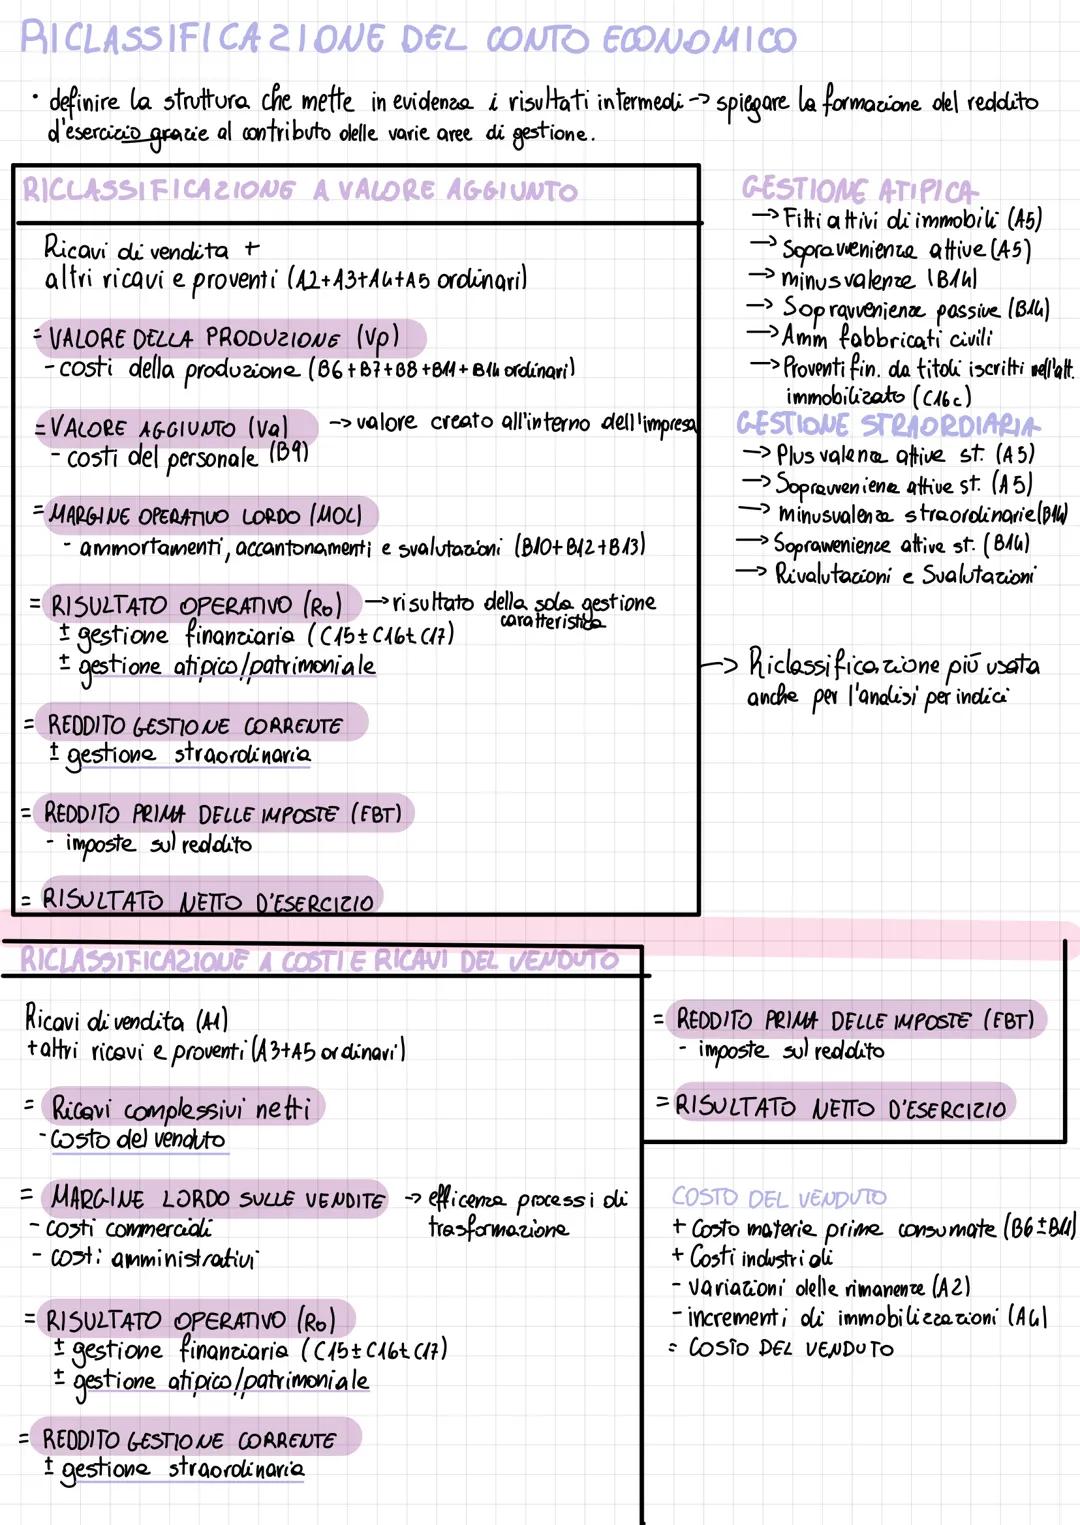 RICLASSIFICAZIONE DEL CONTO ECONOMICO
• definire la struttura che mette in evidenza i risultati intermedi -> spiegare la formazione del reddito
d'esercizio grazie al contributo delle varie aree di gestione.
RICLASSIFICAZIONE A VALORE AGGIUNTO
Ricavi di vendita +
altri ricavi e proventi (A2+A3+A4+A5 ordinari)
= VALORE DELLA PRODUZIONE (Vp)
- costi della produzione (B6+B7+B8+B11+B14 ordinari)
= VALORE AGGIUNTO (Va) -> valore creato all'interno dell'impresa
- costi del personale (B9)
= MARGINE OPERATIVO LORDO (MOL)
- ammortamenti, accantonamenti e svalutazioni (B10+B12+B13)
= RISULTATO OPERATIVO (Ro) -> risultato della sola gestione
caratteristica
± gestione finanziaria (C15±C16±C17)
± gestione atipico/patrimoniale
= REDDITO GESTIONE CORRENTE
± gestione straordinaria
= REDDITO PRIMA DELLE IMPOSTE (EBT)
- imposte sul reddito
= RISULTATO NETTO D'ESERCIZIO
GESTIONE ATIPICA
-> Fitti attivi di immobili (A5)
-> Sopravvenienze attive (A5)
-> minusvalenze (B14)
-> Sopravvenienze passive (B14)
-> Amm fabbricati civili
-> Proventi fin. da titoli iscritti nell'att.
immobilizato (C16c)
GESTIONE STRAORDIARIA
-> Plusvalenze attive st. (A5)
-> Sopravvenienze attive st. (A5)
-> minusvalenza straordinarie (B14)
-> Soprawenienze attive st. (B14)
-> Rivalutazioni e Svalutazioni
-> Riclassificazione più usata
anche per l'analisi per indici
RICLASSIFICAZIONE A COSTI E RICAVI DEL VENDUTO
Ricavi di vendita (A1)
+ altri ricavi e proventi (A3+A5 ordinari)
= Ricavi complessivi netti
- Costo del venduto
= MARGINE LORDO SULLE VENDITE -> efficenza processi di
trasformazione
- costi commerciali
- costi amministrativi
= RISULTATO OPERATIVO (Ro)
± gestione finanziaria (C15±C16±C17)
± gestione atipico/patrimoniale
= REDDITO GESTIONE CORRENTE
± gestione straordinaria
= REDDITO PRIMA DELLE IMPOSTE (EBT)
- imposte sul reddito
= RISULTATO NETTO D'ESERCIZIO
COSTO DEL VENDUTO
+ Costo materie prime consumate (B6±B11)
+ Costi industriali
- variazioni delle rimanenze (A2)
- incrementi di immobilizzazioni (A4)
= COSTO DEL VENDUTO